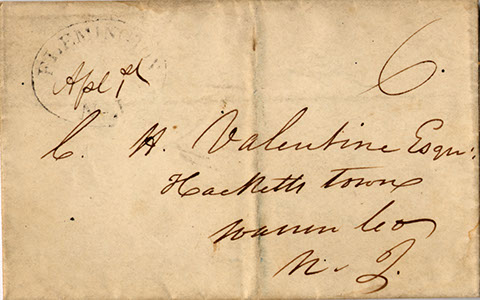 FLEMINGTON
N.J.
Apl 1st
6.
C. H. Valentine Esqr.
Hacketts town
Warren Co
N. J.